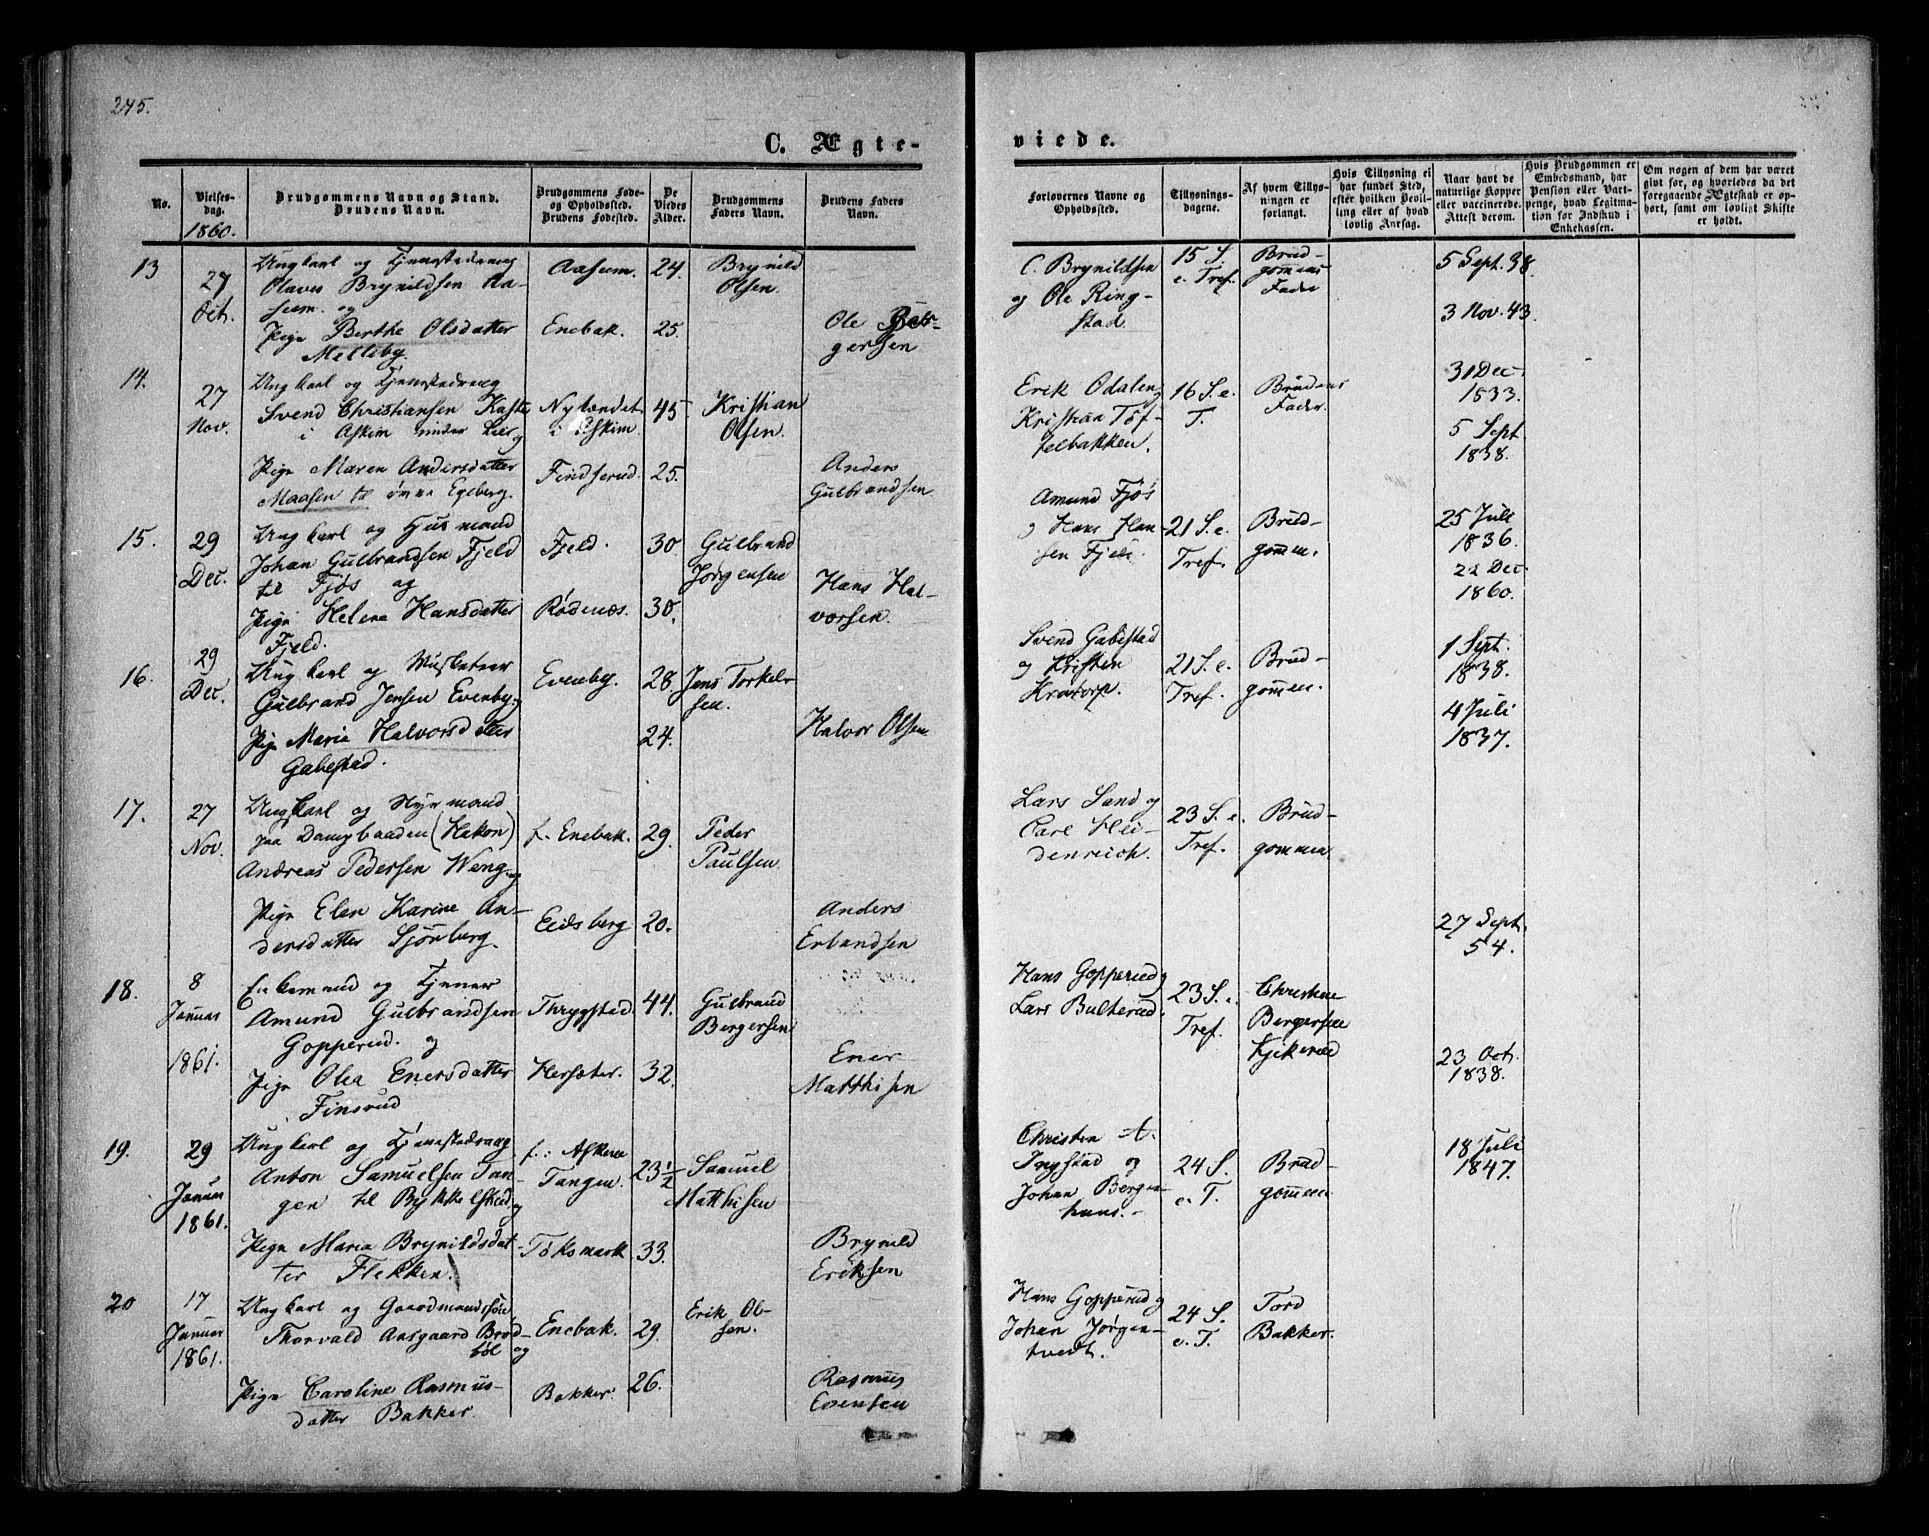 245.
C. Ægte-
viede.
No.
Vielses-
dag.
1860.
Brudgommens Navn og Stand.
Brudens Navn.
Brudgommens Føde-
og Opholdssted.
Brudens Fødested.
De
Viedes
Alder.
Brudgommens
Faders Navn.
Brudens Faders
Navn.
Forlovernes Navne og
Opholdssted.
Tillysnings-
dagene.
Af hvem Tillys-
ningen er
forlangt.
Hvis Tillysning ei
har fundet Sted,
efter hvilken Bevil-
ling eller af hvad
lovlig Aarsag.
Naar havt de
naturlige Kopper
eller vaccinerede.
Attest derom.
Hvis Brudgommen er
Embedsmand, har
Pension eller Vart-
penge, hvad Legitima-
tion for Indskud i
Enkekassen.
Om nogen af dem har været
gift før, og hvorledes da det
foregaaende Ægteskab er op-
hørt, samt om lovligt Skifte
er holdt.
13
27
Oct.
Ungkarl og Tjenestedreng
Olaves Brynildsen Aa-
seum. og
Pige Berthe Olsdatter
Melleby.
Aaseum.
Enebak.
24.
25.
Brynild
Olsen.
Ole
gersen
C. Brynildsen
og Ole Ring-
stad.
15 S.
e. Tref.
Brud-
gomens
Fader
5 Sept. 38.
3 Nov. 43.
14.
27
Nov.
Ungkarl og Tjenestedreng
Svend Christiansen Kaste
i Askim under Lier og
Pige Maren Andersdatter
Maasen Egeberg.
Nylændet
i Askim.
Findserud.
45
25.
Kristian
Olsen.
Anders
Gulbrandsen
Erik Odalen og
Kristian Tøf-
felbakken.
16 S. e.
T.
Brudens
Fader.
31 Dec
1833.
5 Sept
1838.
15.
29
Dec.
Ungkarl og Husmand
Johan Gulbrandsen Fjeld
til Fjøs og
Pige Helene Hansdatter
Fjeld.
Fjeld.
Rødenæs.
30.
30.
Gulbrand
Jørgensen
Hans Hal-
vorsen.
Amund Fjøs
og Hans Han-
sen Fjeld.
21 S. e.
Tref.
Brud-
gommen.
25 Juli
1836.
22 Dec.
1860.
16.
29
Dec.
Ungkarl og Musketeer
Gulbrand Jensen Evenby og
Pige Maria Halvorsdatter
Gabestad.
Evenby.
28.
24.
Jens Torkel-
sen.
Halvor Olsen
Svend Gabestad
og Kristen
Kratorp.
21 S. e.
Tref.
Brud-
gommen.
1 Sept.
1838.
4 Juli
1837.
17.
27
Nov.
Ungkarl og
paa Dampbaaden (Hakon)
Andreas Pedersen Weng og
Pige Elen Karine An-
dersdatter Sjønberg.
f. Enebak.
Eidsberg
29.
20.
Peder
Paulsen.
Anders
Erlandsen
Lars Sand og
Carl Hei-
denreich.
23 S. e.
Tref.
Brud-
gommen
27 Sept.
54.
18.
8
Januar
1861.
Enkemand og Tjener
Amund Gulbrandsen
Gopperud. og
Pige Olea Enersdatter
Finsrud
Thrygstad
Hersæter.
44.
32.
Gulbrand
Bergersen
Ener
Matthisen
Hans Gopperud og
Lars Bulterud.
23 S. e.
Tref.
Christian
Bergersen
Kjikerud
23 Oct.
1838.
19.
29
Januar
1861.
Ungkarl og Tjenestedreng
Anton Samuelsen Tan-
gen til Bykkelsked og
Pige Maria Brynildsdat-
ter Flekken.
f.: Askim
Tangen.
Toksmark
23 1/2
33.
Samuel
Matthisen
Brynild
Eriksen
Christen A.
Ingstad og
Johan Bergen-
huus.
24 S.
e. T.
Brud-
gommen
18 Juli
1847.
20
17
Januar
1861.
Ungkarl og Gaardmandssøn
Thorvald Aasgaard Brød-
bøl og
Pige Caroline Rasmus-
datter Bakker.
Enebak.
Bakker.
29.
26.
Erik Ol-
sen.
Rasmus
Evensen
Hans Gopperud og
Johan Jørgen-
tvedt.
24 S.
e. T.
Tord
Bakker.